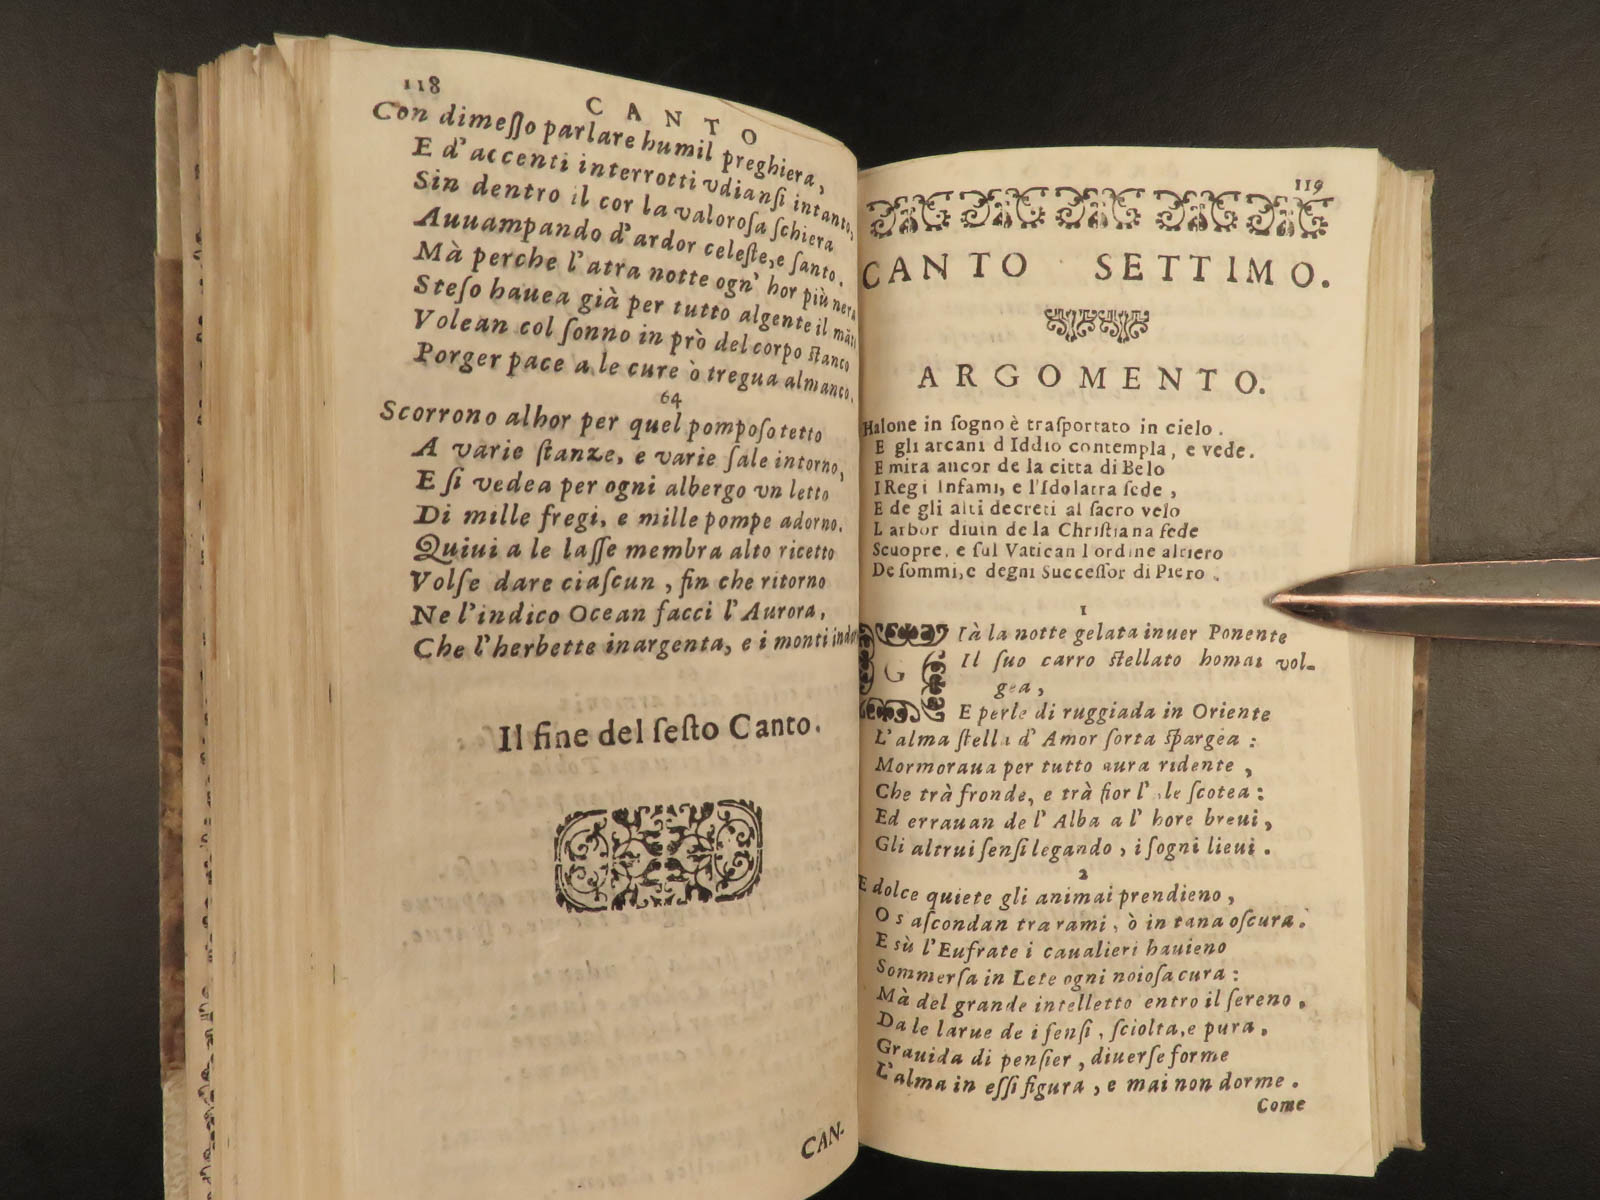 118
CANTO
Con dimeſſo parlare humil preghiera,
E d'accenti interrotti vdianſi intanto,
Sin dentro il cor la valoroſa ſchiera
Auuampando d'ardor celeſte, e ſanto.
Mà perche l'atra notte ogn' hor più nera
Steſo hauea già per tutto algente il
Volean col ſonno in prò del corpo ſtanco
Porger pace a le cure ò tregua almanco.
64
Scorrono alhor per quel pompoſo tetto
A varie ſtanze, e varie ſale intorno,
E ſi vedea per ogni albergo vn letto
Di mille fregi, e mille pompe adorno.
Quiui a le laſſe membra alto ricetto
Volſe dare ciaſcun, fin che ritorno
Ne l'indico Ocean facci l'Aurora,
Che l'herbette inargenta, e i monti
Il fine del ſeſto Canto.
CAN-
119
CANTO SETTIMO.
ARGOMENTO.
Halone in ſogno è traſportato in cielo.
E gli arcani d Iddio contempla, e vede.
E mira ancor de la citta di Belo
I Regi Infami, e l'Idolatra ſede,
E de gli alti decreti al ſacro velo
L arbor diuin de la Chriſtiana fede
Scuopre, e ſul Vatican l ordine altiero
De ſommi, e degni Succeſſor di Piero.
1
Già la notte gelata inuer Ponente
Il ſuo carro ſtellato homai vol-
gea,
E perle di ruggiada in Oriente
L'alma ſtella d' Amor ſorta ſpargea:
Mormoraua per tutto aura ridente,
Che trà fronde, e trà fior l' ale ſcotea:
Ed errauan de l' Alba a l' hore breui,
Gli altrui ſenſi legando, i ſogni lieui.
2
E dolce quiete gli animai prendieno,
O s aſcondan tra rami, ò in tana oſcura.
E sù l'Eufrate i caualieri hauieno
Sommerſa in Lete ogni noioſa cura:
Mà del grande intelletto entro il ſereno,
Da le larue de i ſenſi, ſciolta, e pura,
Grauida di penſier, diuerſe forme
L'alma in eſſi figura, e mai non dorme.
Come